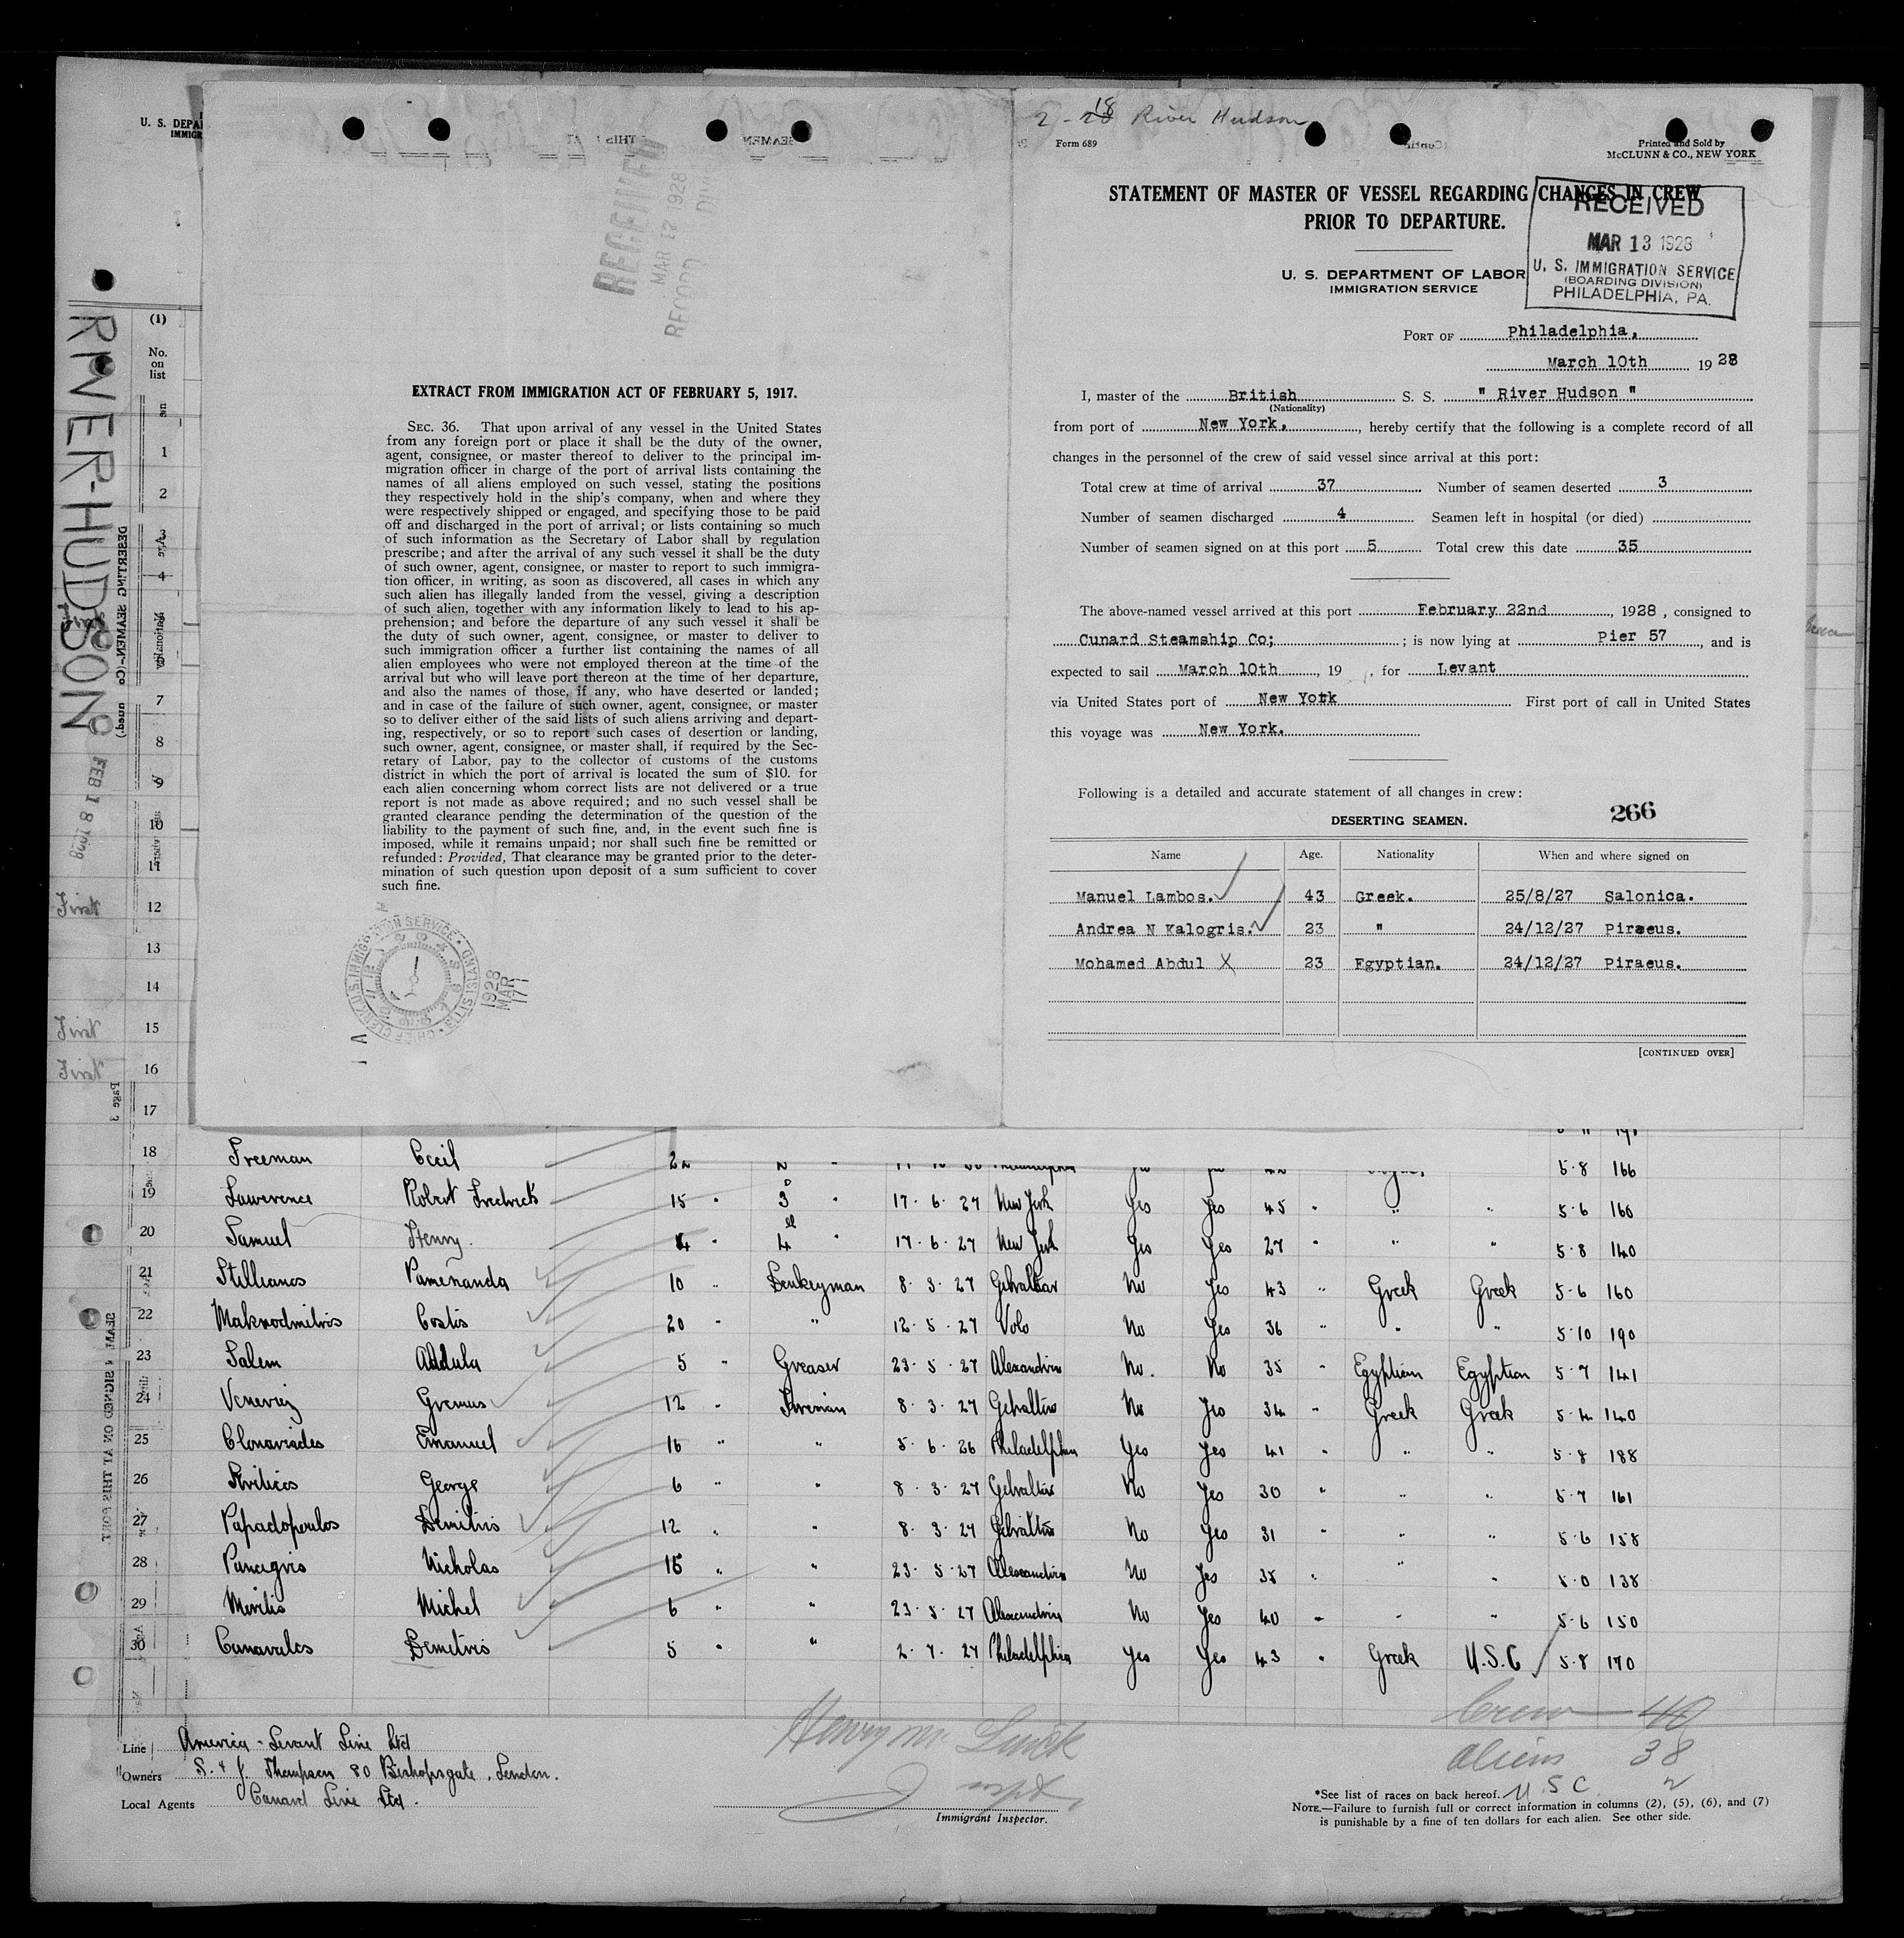 U. S. DEPA
IMMIGR
RIVER-HUDSON
FEB 18 1928
(1)
No.
on
list
1
2
3
4
7
8
9
10
11
First 12
13
14
First 15
First 16
17
RECEIVED
MAR 17 1928
RECORD DIV
EXTRACT FROM IMMIGRATION ACT OF FEBRUARY 5, 1917.
SEC. 36. That upon arrival of any vessel in the United States
from any foreign port or place it shall be the duty of the owner,
agent, consignee, or master thereof to deliver to the principal im-
migration officer in charge of the port of arrival lists containing the
names of all aliens employed on such vessel, stating the positions
they respectively hold in the ship's company, when and where they
were respectively shipped or engaged, and specifying those to be paid
off and discharged in the port of arrival; or lists containing so much
of such information as the Secretary of Labor shall by regulation
prescribe; and after the arrival of any such vessel it shall be the duty
of such owner, agent, consignee, or master to report to such immigra-
tion officer, in writing, as soon as discovered, all cases in which any
such alien has illegally landed from the vessel, giving a description
of such alien, together with any information likely to lead to his ap-
prehension; and before the departure of any such vessel it shall be
the duty of such owner, agent, consignee, or master to deliver to
such immigration officer a further list containing the names of all
alien employees who were not employed thereon at the time of the
arrival but who will leave port thereon at the time of her departure,
and also the names of those, if any, who have deserted or landed;
and in case of the failure of such owner, agent, consignee, or master
so to deliver either of the said lists of such aliens arriving and depart-
ing, respectively, or so to report such cases of desertion or landing,
such owner, agent, consignee, or master shall, if required by the Sec-
retary of Labor, pay to the collector of customs of the customs
district in which the port of arrival is located the sum of $10. for
each alien concerning whom correct lists are not delivered or a true
report is not made as above required; and no such vessel shall be
granted clearance pending the determination of the question of the
liability to the payment of such fine, and, in the event such fine is
imposed, while it remains unpaid; nor shall such fine be remitted or
refunded: Provided, That clearance may be granted prior to the deter-
mination of such question upon deposit of a sum sufficient to cover
such fine.
CHIEF CLERK U.S. IMMIGRATION SERVICE ELLIS ISLAND
1928 MAR 17
2-18 River Hudson
Form 689
Printed and Sold by
McCLUNN & CO., NEW YORK
STATEMENT OF MASTER OF VESSEL REGARDING CHANGES IN CREW
PRIOR TO DEPARTURE.
RECEIVED
MAR 13 1928
U. S. IMMIGRATION SERVICE
(BOARDING DIVISION)
PHILADELPHIA, PA.
U. S. DEPARTMENT OF LABOR
IMMIGRATION SERVICE
PORT OF Philadelphia,
March 10th 1928
I, master of the British S. S. " River Hudson "
(Nationality)
from port of New York, , hereby certify that the following is a complete record of all
changes in the personnel of the crew of said vessel since arrival at this port:
Total crew at time of arrival 37 Number of seamen deserted 3
Number of seamen discharged 4 Seamen left in hospital (or died)
Number of seamen signed on at this port 5 Total crew this date 35
The above-named vessel arrived at this port February 22nd , 1928 , consigned to
Cunard Steamship Co; ; is now lying at Pier 57 , and is
expected to sail March 10th , 19 , for Levant
via United States port of New York First port of call in United States
this voyage was New York.
Following is a detailed and accurate statement of all changes in crew:
266
DESERTING SEAMEN.
Name Age. Nationality When and where signed on
Manuel Lambos. 43 Greek. 25/8/27 Salonica.
Andrea N Kalogris. 23 " 24/12/27 Piraeus.
Mohamed Abdul X 23 Egyptian. 24/12/27 Piraeus.
[CONTINUED OVER]
18 Freeman Cecil 22 5-8 166
19 Lawerence Robert Fredrick 15 " 3 " 17-6-27 New York Yes Yes 45 " " " 5-6 160
20 Samuel Henry. 4 " 4 " 17-6-27 New York Yes Yes 27 " " " 5-8 140
21 Stellianos Pamenanda 10 " Donkeyman 8-3-27 Gibraltar No Yes 43 " Greek Greek 5-6 160
22 Makrodmitris Costis 20 " " 12-5-27 Volo No Yes 36 " " " 5-10 190
23 Salem Abdula 5 " Greaser 23-5-27 Alexandria No. No 35 " Egyptian Egyptian 5-7 141
24 Gremus 12 " Fireman 8-3-27 Gibraltar No Yes 34 " Greek Greek 5-4 140
25 Clonariades Emanuel 16 " " 5-6-26 Philadelphia Yes Yes 41 " " " 5-8 188
26 George 6 " " 8-3-27 Gibraltar No Yes 30 " " " 5-7 161
27 Papadopoulos Dimitris 12 " " 8-3-27 Gibraltar No Yes 31 " " " 5-6 158
28 Panagris Nicholas 15 " " 23-5-27 Alexandria No Yes 38 " " " 5-0 138
29 Mirilis Michel 6 " " 23-5-27 Alexandria No Yes 40 " " " 5-6 150
30 Canavalos Demetris 5 " " 2-7-27 Philadelphia Yes Yes 43 " Greek U.S.C 5-8 170
Crew — 40
aliens 38
U S C 2
Line America - Levant Line Ltd
Owners S. & J. Thompson 80 Bishopsgate, London.
Local Agents Cunard Line Ltd.
Immigrant Inspector.
*See list of races on back hereof.
NOTE.—Failure to furnish full or correct information in columns (2), (5), (6), and (7)
is punishable by a fine of ten dollars for each alien. See other side.